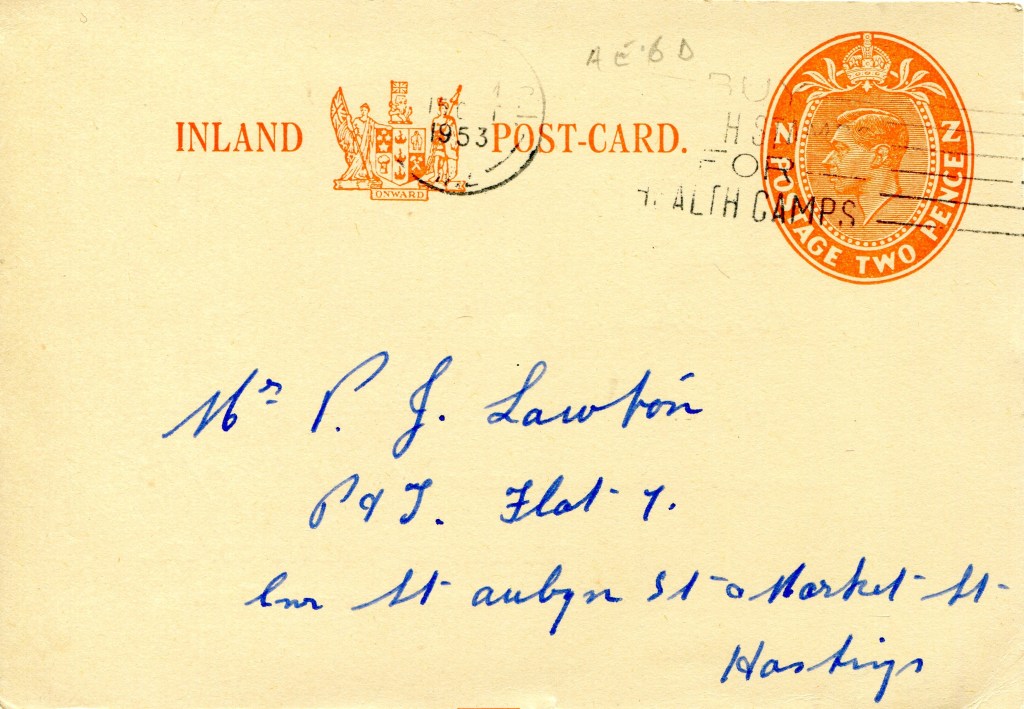 AE'6D
INLAND POST-CARD.
1953
ONWARD
FOR
HEALTH CAMPS
N Z POSTAGE TWO PENCE
Mr P. J. Lawton
P & T. Flat 7.
Cnr St Aubyn St & Market St
Hastings